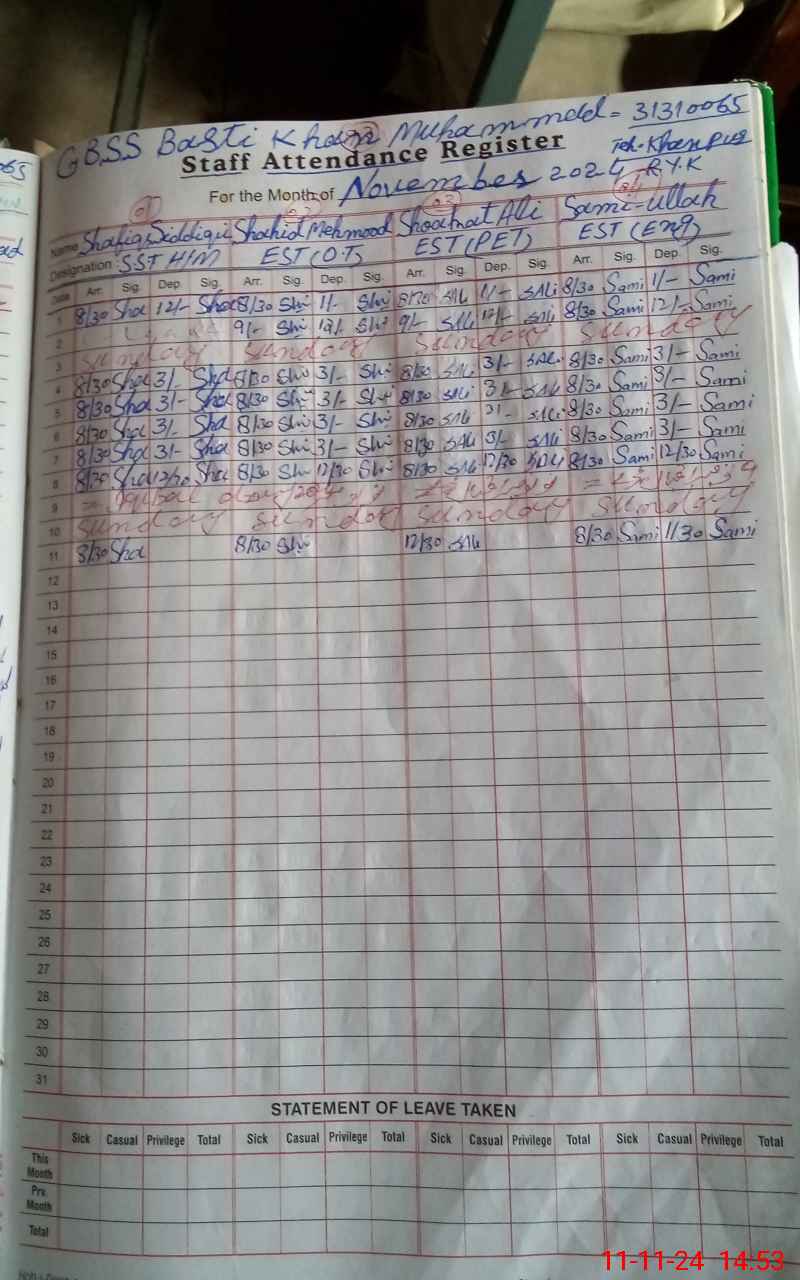 GBSS Basti Khan Muhammad = 31310065
Staff Attendance Register
Teh. Khan Pur
For the Month of November 2024 R.Y.K
Name Shafiq Siddiqui Shahid Mehmood Shoukat Ali Sami-ullah
Designation SST H/M EST (O.T) EST (PET) EST (Eng)
Date Arr. Sig. Dep. Sig. Arr. Sig. Dep. Sig. Arr. Sig. Dep. Sig. Arr. Sig. Dep. Sig.
1 8/30 Sha 12/- Sha 8/30 Shi 1/- Shi 8/30 SAli 1/- SAli 8/30 Sami 1/- Sami
2 9/- Shi 12/- Shi 9/- SAli 12/- SAli 8/30 Sami 12/- Sami
3 Sunday Sunday Sunday Sunday
4 8/30 Sha 3/- Sha 8/30 Shi 3/- Shi 8/30 SAli 3/- SAli 8/30 Sami 3/- Sami
5 8/30 Sha 3/- Sha 8/30 Shi 3/- Shi 8/30 SAli 3/- SAli 8/30 Sami 3/- Sami
6 8/30 Sha 3/- Sha 8/30 Shi 3/- Shi 8/30 SAli SAli 8/30 Sami 3/- Sami
7 8/30 Sha 3/- Sha 8/30 Shi 3/- Shi 8/30 SAli 3/- SAli 8/30 Sami 3/- Sami
8 8/30 Sha 12/30 Sha 8/30 Shi 12/30 Shi 8/30 SAli 12/30 SAli 8/30 Sami 12/30 Sami
9 = Iqbal day
10 Sunday Sunday Sunday Sunday
11 8/30 Sha 8/30 Shi 12/30 SAli 8/30 Sami 1/30 Sami
12
13
14
15
16
17
18
19
20
21
22
23
24
25
26
27
28
29
30
31
STATEMENT OF LEAVE TAKEN
Sick Casual Privilege Total Sick Casual Privilege Total Sick Casual Privilege Total Sick Casual Privilege Total
This
Month
Prv.
Month
Total
11-11-24 14:53